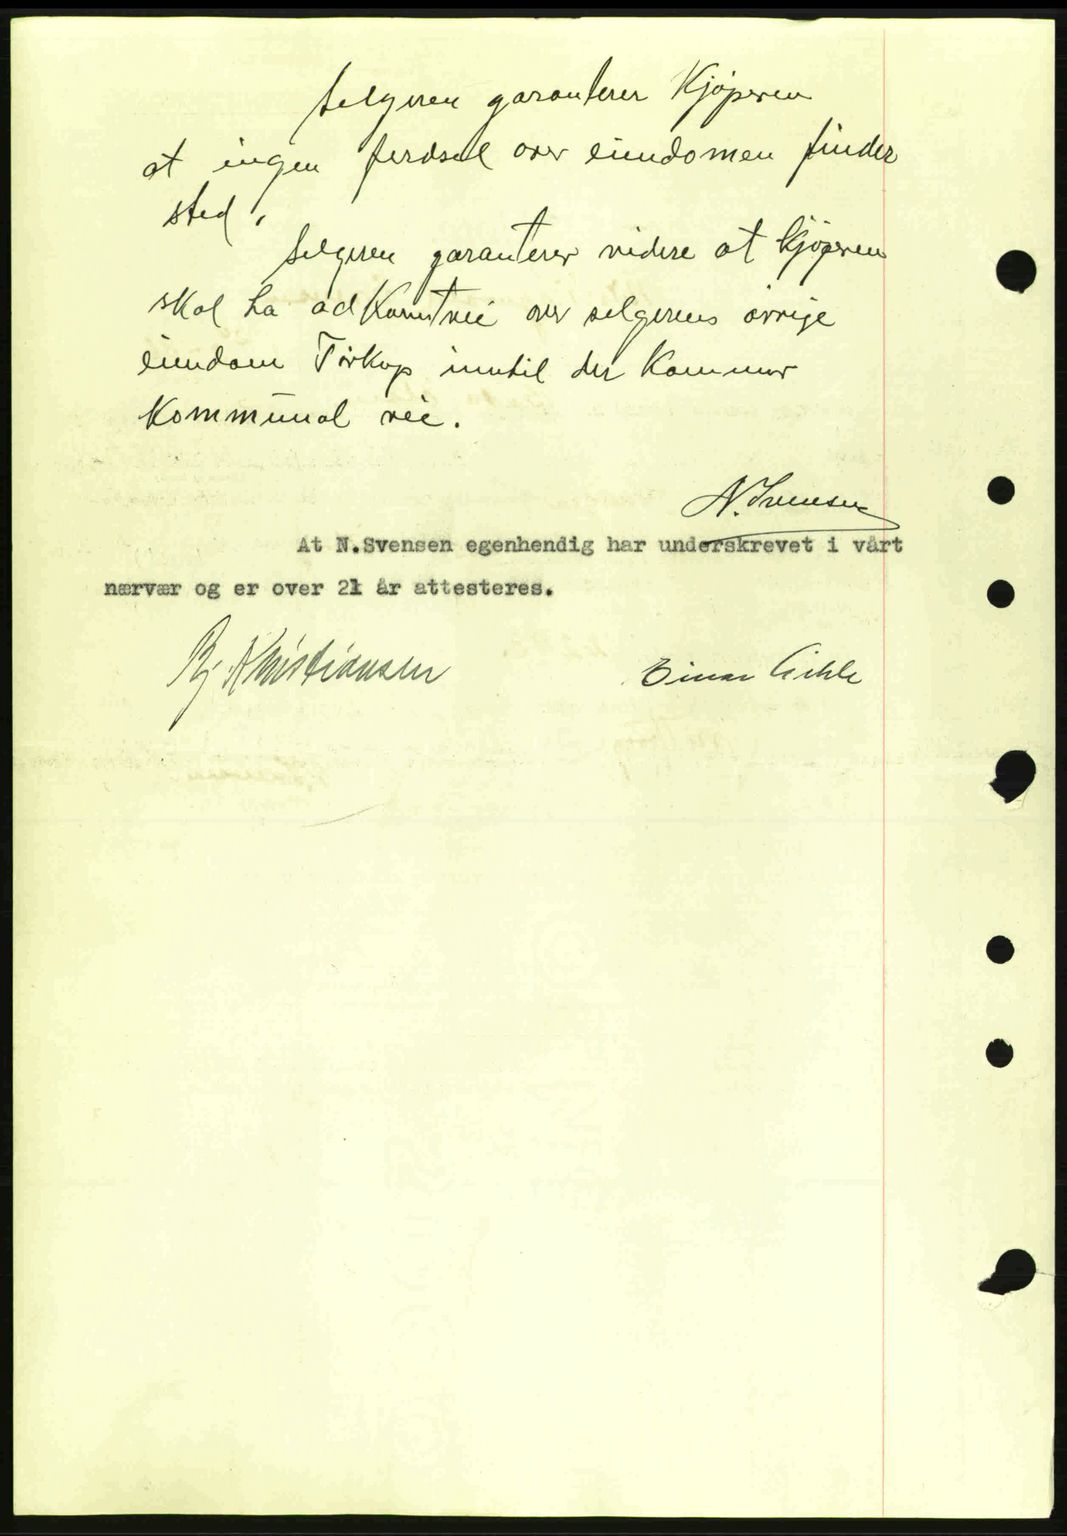 Selgeren garanterer Kjøperen
at ingen ferdsel over eiendomen finder
sted.
Selgeren garanterer videre at Kjøperen
skal ha adkomstvei over selgerens øvrige
eiendom Torkop inntil der kommer
Kommunal vei.
N. Svensen
At N.Svensen egenhendig har underskrevet i vårt
nærvær og er over 21 år attesteres.
Kristiansen
Einar